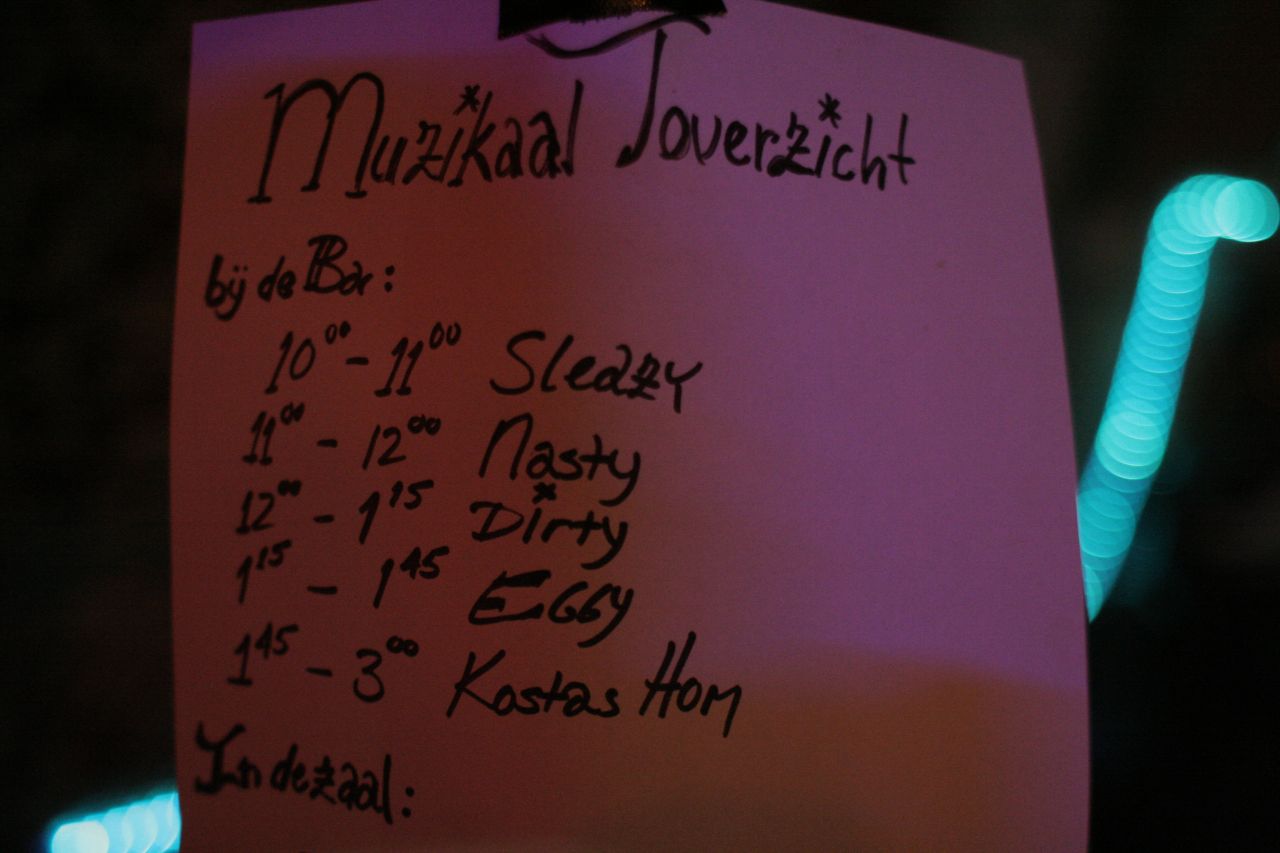 Muzikaal Joverzicht
bij de Bar:
10⁰⁰ - 11⁰⁰ Sleazy
11⁰⁰ - 12⁰⁰ Nasty
12⁰⁰ - 1¹⁵ Dirty
1¹⁵ - 1⁴⁵ Eggy
1⁴⁵ - 3⁰⁰ Kostas Hom
In de zaal: